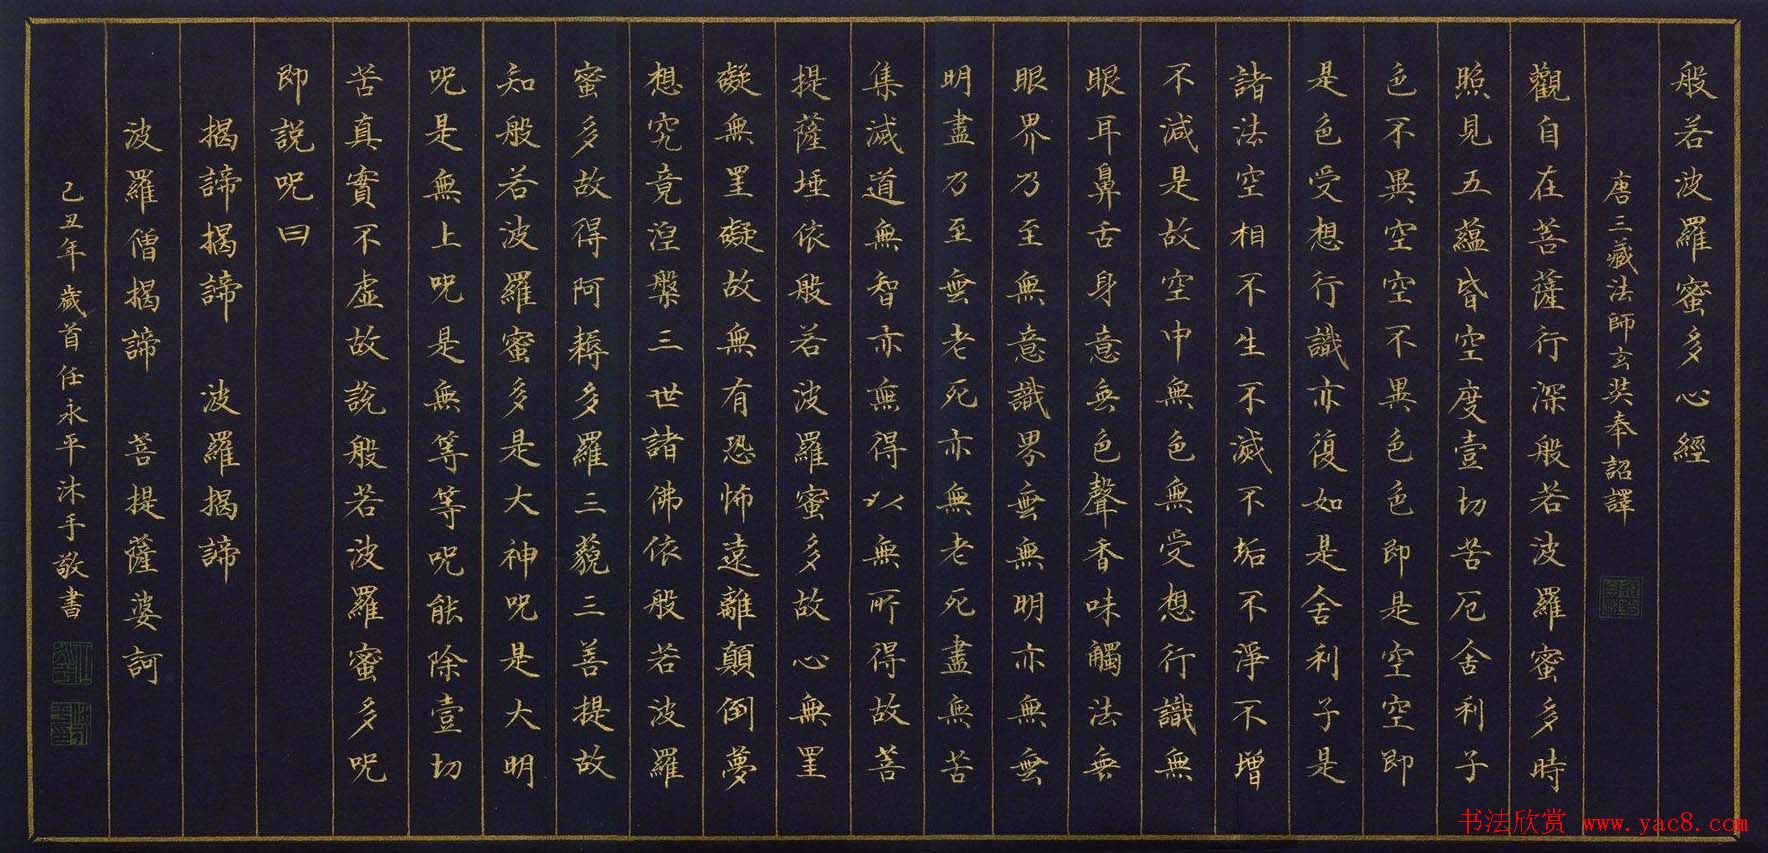 般若波羅蜜多心經
唐三藏法師玄奘奉詔譯
觀自在菩薩行深般若波羅蜜多時
照見五蘊皆空度壹切苦厄舍利子
色不異空空不異色色即是空空即
是色受想行識亦復如是舍利子是
諸法空相不生不滅不垢不淨不增
不減是故空中無色無受想行識無
眼耳鼻舌身意無色聲香味觸法無
眼界乃至無意識界無無明亦無無
明盡乃至無老死亦無老死盡無苦
集滅道無智亦無得以無所得故菩
提薩埵依般若波羅蜜多故心無罣
礙無罣礙故無有恐怖遠離顛倒夢
想究竟涅槃三世諸佛依般若波羅
蜜多故得阿耨多羅三藐三菩提故
知般若波羅蜜多是大神呪是大明
呪是無上呪是無等等呪能除壹切
苦真實不虛故說般若波羅蜜多呪
即說呪曰
揭諦揭諦 波羅揭諦
波羅僧揭諦 菩提薩婆訶
己丑年歲首任永平沐手敬書
书法欣赏 www.yac8.com